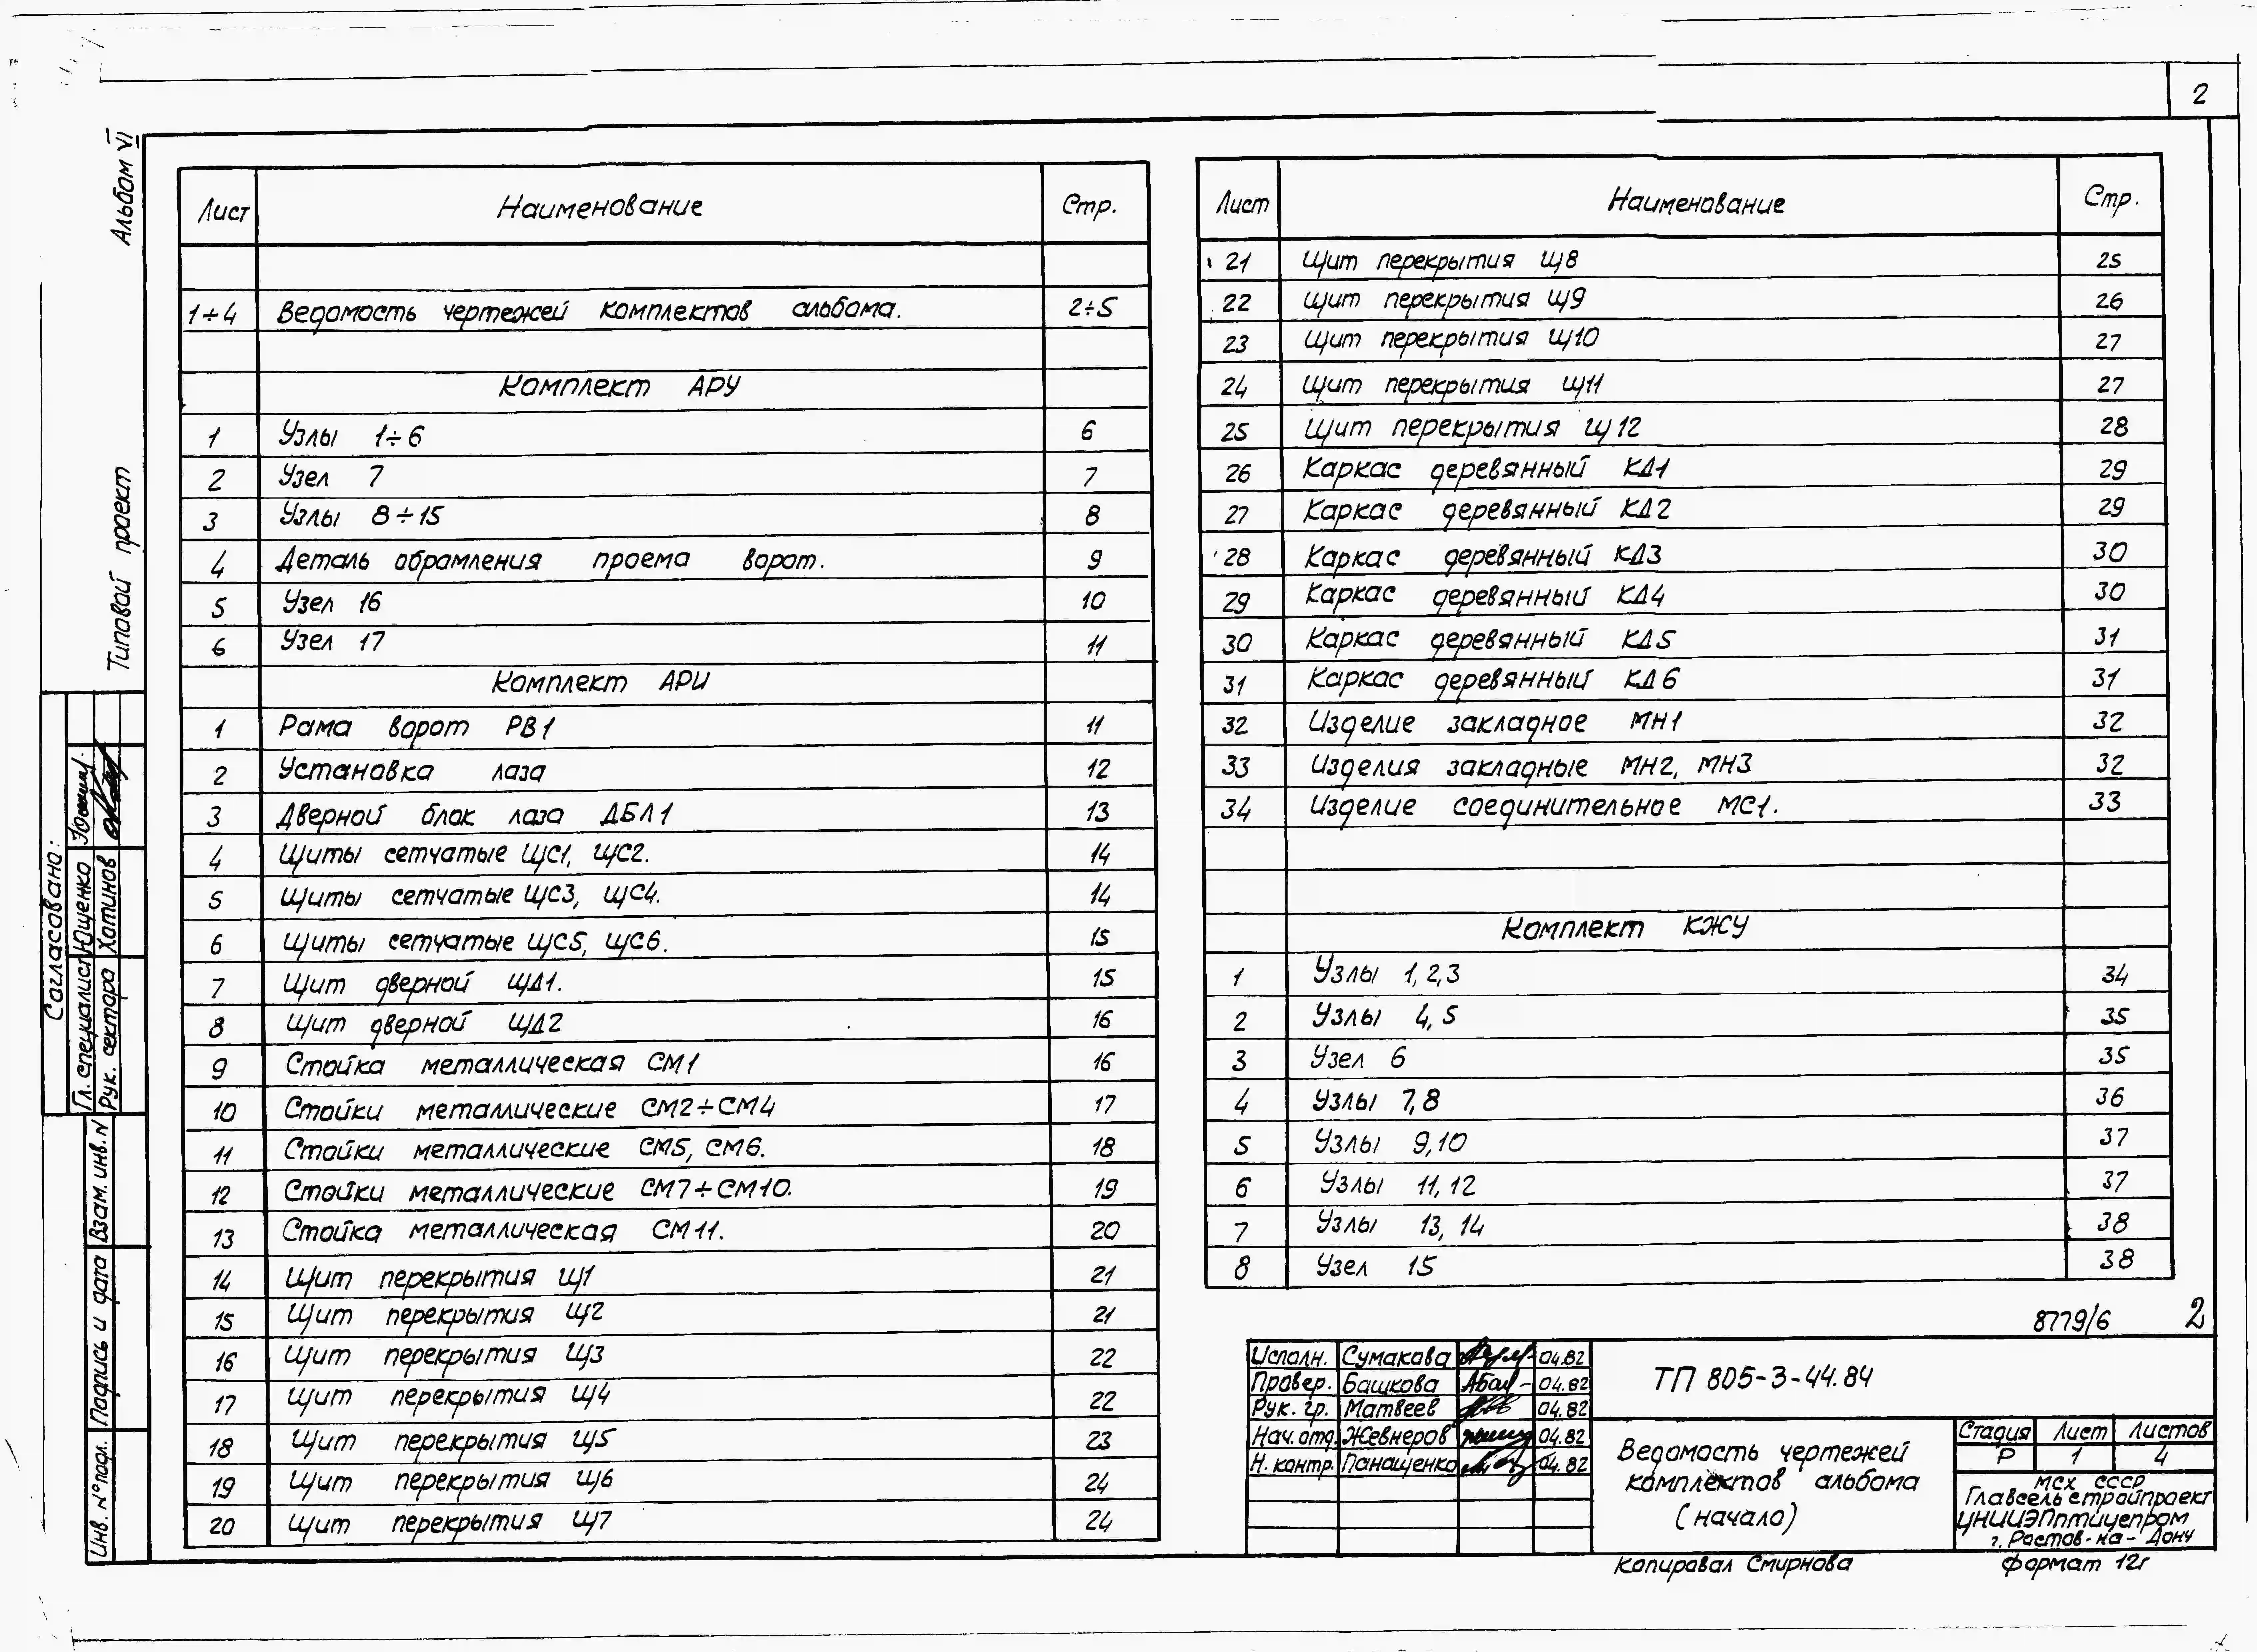 2
Альбом VI
Типовой проект
Лист Наименование Стр.
1÷4 Ведомость чертежей комплектов альбома. 2÷5
Комплект АРУ
1 Узлы 1÷6 6
2 Узел 7 7
3 Узлы 8÷15 8
4 Деталь обрамления проема ворот. 9
5 Узел 16 10
6 Узел 17 11
Комплект АРИ
1 Рама ворот РВ1 11
2 Установка лаза 12
3 Дверной блок лаза ДБЛ1 13
4 Щиты сетчатые ЩС1, ЩС2. 14
5 Щиты сетчатые ЩС3, ЩС4. 14
6 Щиты сетчатые ЩС5, ЩС6. 15
7 Щит дверной ЩД1. 15
8 Щит дверной ЩД2 16
9 Стойка металлическая СМ1 16
10 Стойки металлические СМ2÷СМ4 17
11 Стойки металлические СМ5, СМ6. 18
12 Стойки металлические СМ7÷СМ10. 19
13 Стойка металлическая СМ11. 20
14 Щит перекрытия Щ1 21
15 Щит перекрытия Щ2 21
16 Щит перекрытия Щ3 22
17 Щит перекрытия Щ4 22
18 Щит перекрытия Щ5 23
19 Щит перекрытия Щ6 24
20 Щит перекрытия Щ7 24
Лист Наименование Стр.
21 Щит перекрытия Щ8 25
22 Щит перекрытия Щ9 26
23 Щит перекрытия Щ10 27
24 Щит перекрытия Щ11 27
25 Щит перекрытия Щ12 28
26 Каркас деревянный КД1 29
27 Каркас деревянный КД2 29
28 Каркас деревянный КД3 30
29 Каркас деревянный КД4 30
30 Каркас деревянный КД5 31
31 Каркас деревянный КД6 31
32 Изделие закладное МН1 32
33 Изделия закладные МН2, МН3 32
34 Изделие соединительное МС1. 33
Комплект КЖУ
1 Узлы 1,2,3 34
2 Узлы 4,5 35
3 Узел 6 35
4 Узлы 7,8 36
5 Узлы 9,10 37
6 Узлы 11,12 37
7 Узлы 13, 14 38
8 Узел 15 38
8779/6 2
Исполн. Сумакова 04.82
Провер. Башкова 04.82
Рук. гр. Матвеев 04.82
Нач. отд. Жевнеров 04.82
Н. контр. Панащенко 04.82
ТП 805-3-44.84
Ведомость чертежей
комплектов альбома
(начало)
Стадия Лист Листов
Р 1 4
МСХ СССР
Главсельстройпроект
ЦНИИЭПптицепром
г. Ростов-на-Дону
Копировал Смирнова Формат 12г
Согласовано:
Гл. специалист Ющенко
Рук. сектора Хатинов
Взам. инв. N
Подпись и дата
Инв. N° подл.